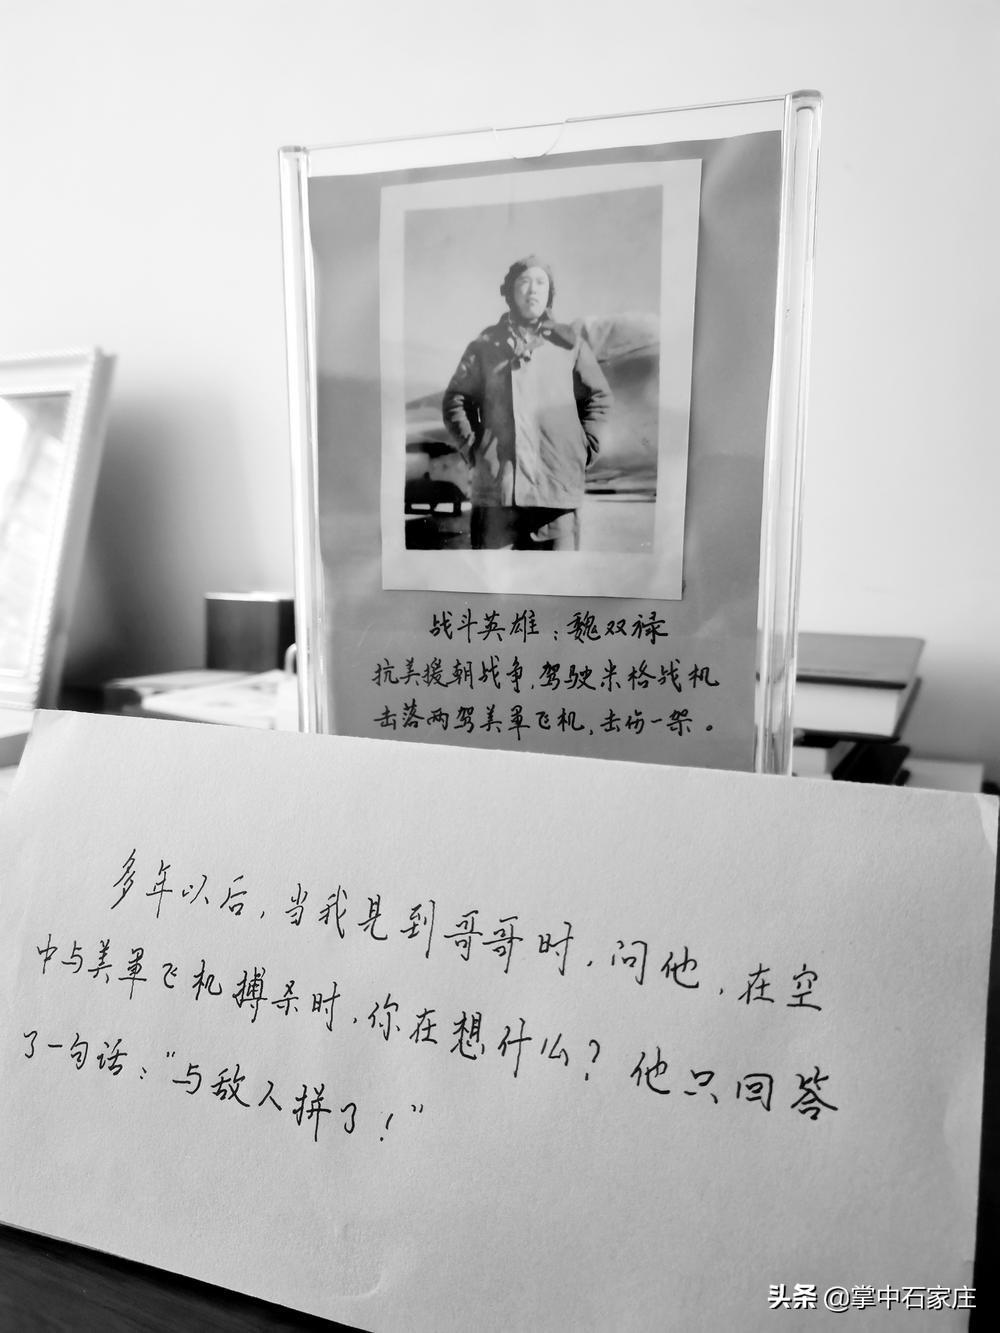 战斗英雄：魏双禄
抗美援朝战争，驾驶米格战机
击落两驾美军飞机，击伤一架。
多年以后，当我见到哥哥时，问他，在空
中与美军飞机搏杀时，你在想什么？他只回答
了一句话：“与敌人拼了！”
头条 @掌中石家庄